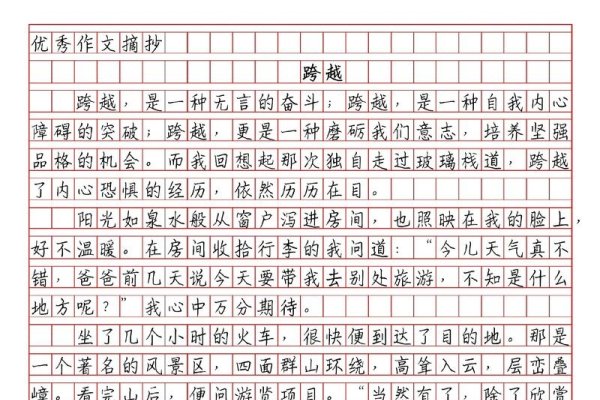 优秀作文摘抄
跨越
跨越，是一种无言的奋斗；跨越，是一种自我内心
障碍的突破；跨越，更是一种磨砺我们意志，培养坚强
品格的机会。而我回想起那次独自走过玻璃栈道，跨越
了内心恐惧的经历，依然历历在目。
阳光如泉水般从窗户泻进房间，也照映在我的脸上，
好不温暖。在房间收拾行李的我问道：“今儿天气真不
错，爸爸前几天说今天要带我去别处旅游，不知是什么
地方呢？”我心中万分期待。
坐了几个小时的火车，很快便到达了目的地。那是
一个著名的风景区，四面群山环绕，高耸入云，层峦叠
嶂。看完山后，便问游览项目。“当然有了，除了欣赏